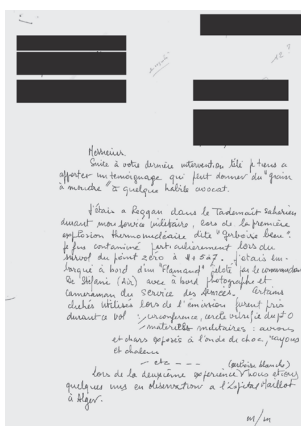 Messieurs.
Suite à votre dernière intervention télé je tiens à
apporter un témoignage qui peut donner du "grain
à moudre" à quelque habile avocat.
J'étais à Reggan dans le Tademaït saharien
durant mon service militaire, lors de la première
explosion thermonucléaire dite "Gerboise bleue".
Je fus contaminé particulièrement lors du
survol du point zéro à . J'étais em-
barqué à bord d'un "Flamand" piloté par le commandant
de (Air) avec à bord photographe et
caméraman du service des armées. Certains
clichés utilisés lors de l'émission furent pris
durant ce vol : circonférence, cercle vitrifié du pt 0
/ matériels militaires : avions
et chars exposés à l'onde de choc, rayons
et chaleur
- etc - - - (gerboise blanche)
Lors de la deuxième expérience nous étions
quelques uns en observation à l'hôpital Maillot
à Alger.